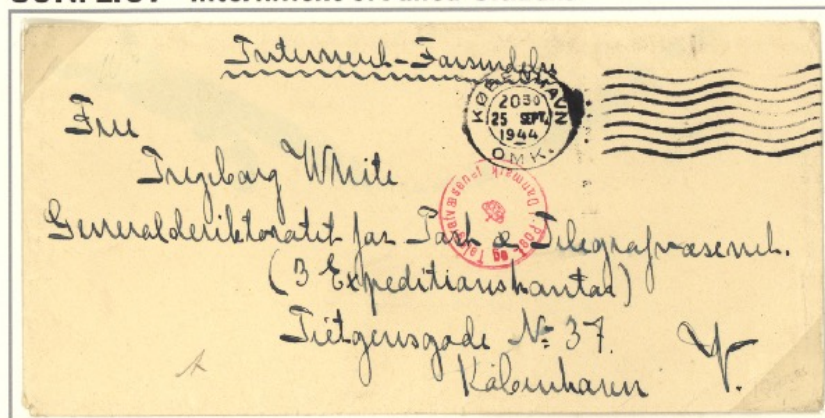 Interneret-Forsendelse
KØBENHAVN
2030
25 SEPT.
1944
OMK.
Fru
Ingeborg White
Generaldirektoratet for Post & Telegrafvæsenet.
(3 Expeditionskontor)
Tietgensgade No 37.
København V.